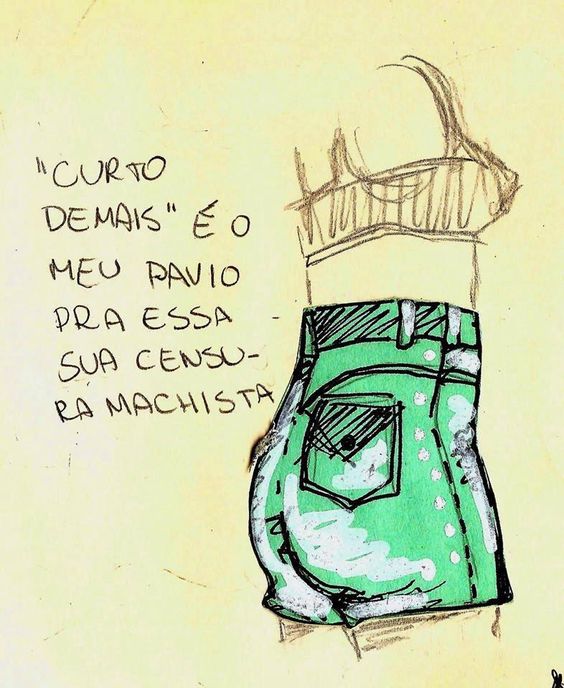 "CURTO
DEMAIS" É O
MEU PAVIO
PRA ESSA
SUA CENSU-
RA MACHISTA